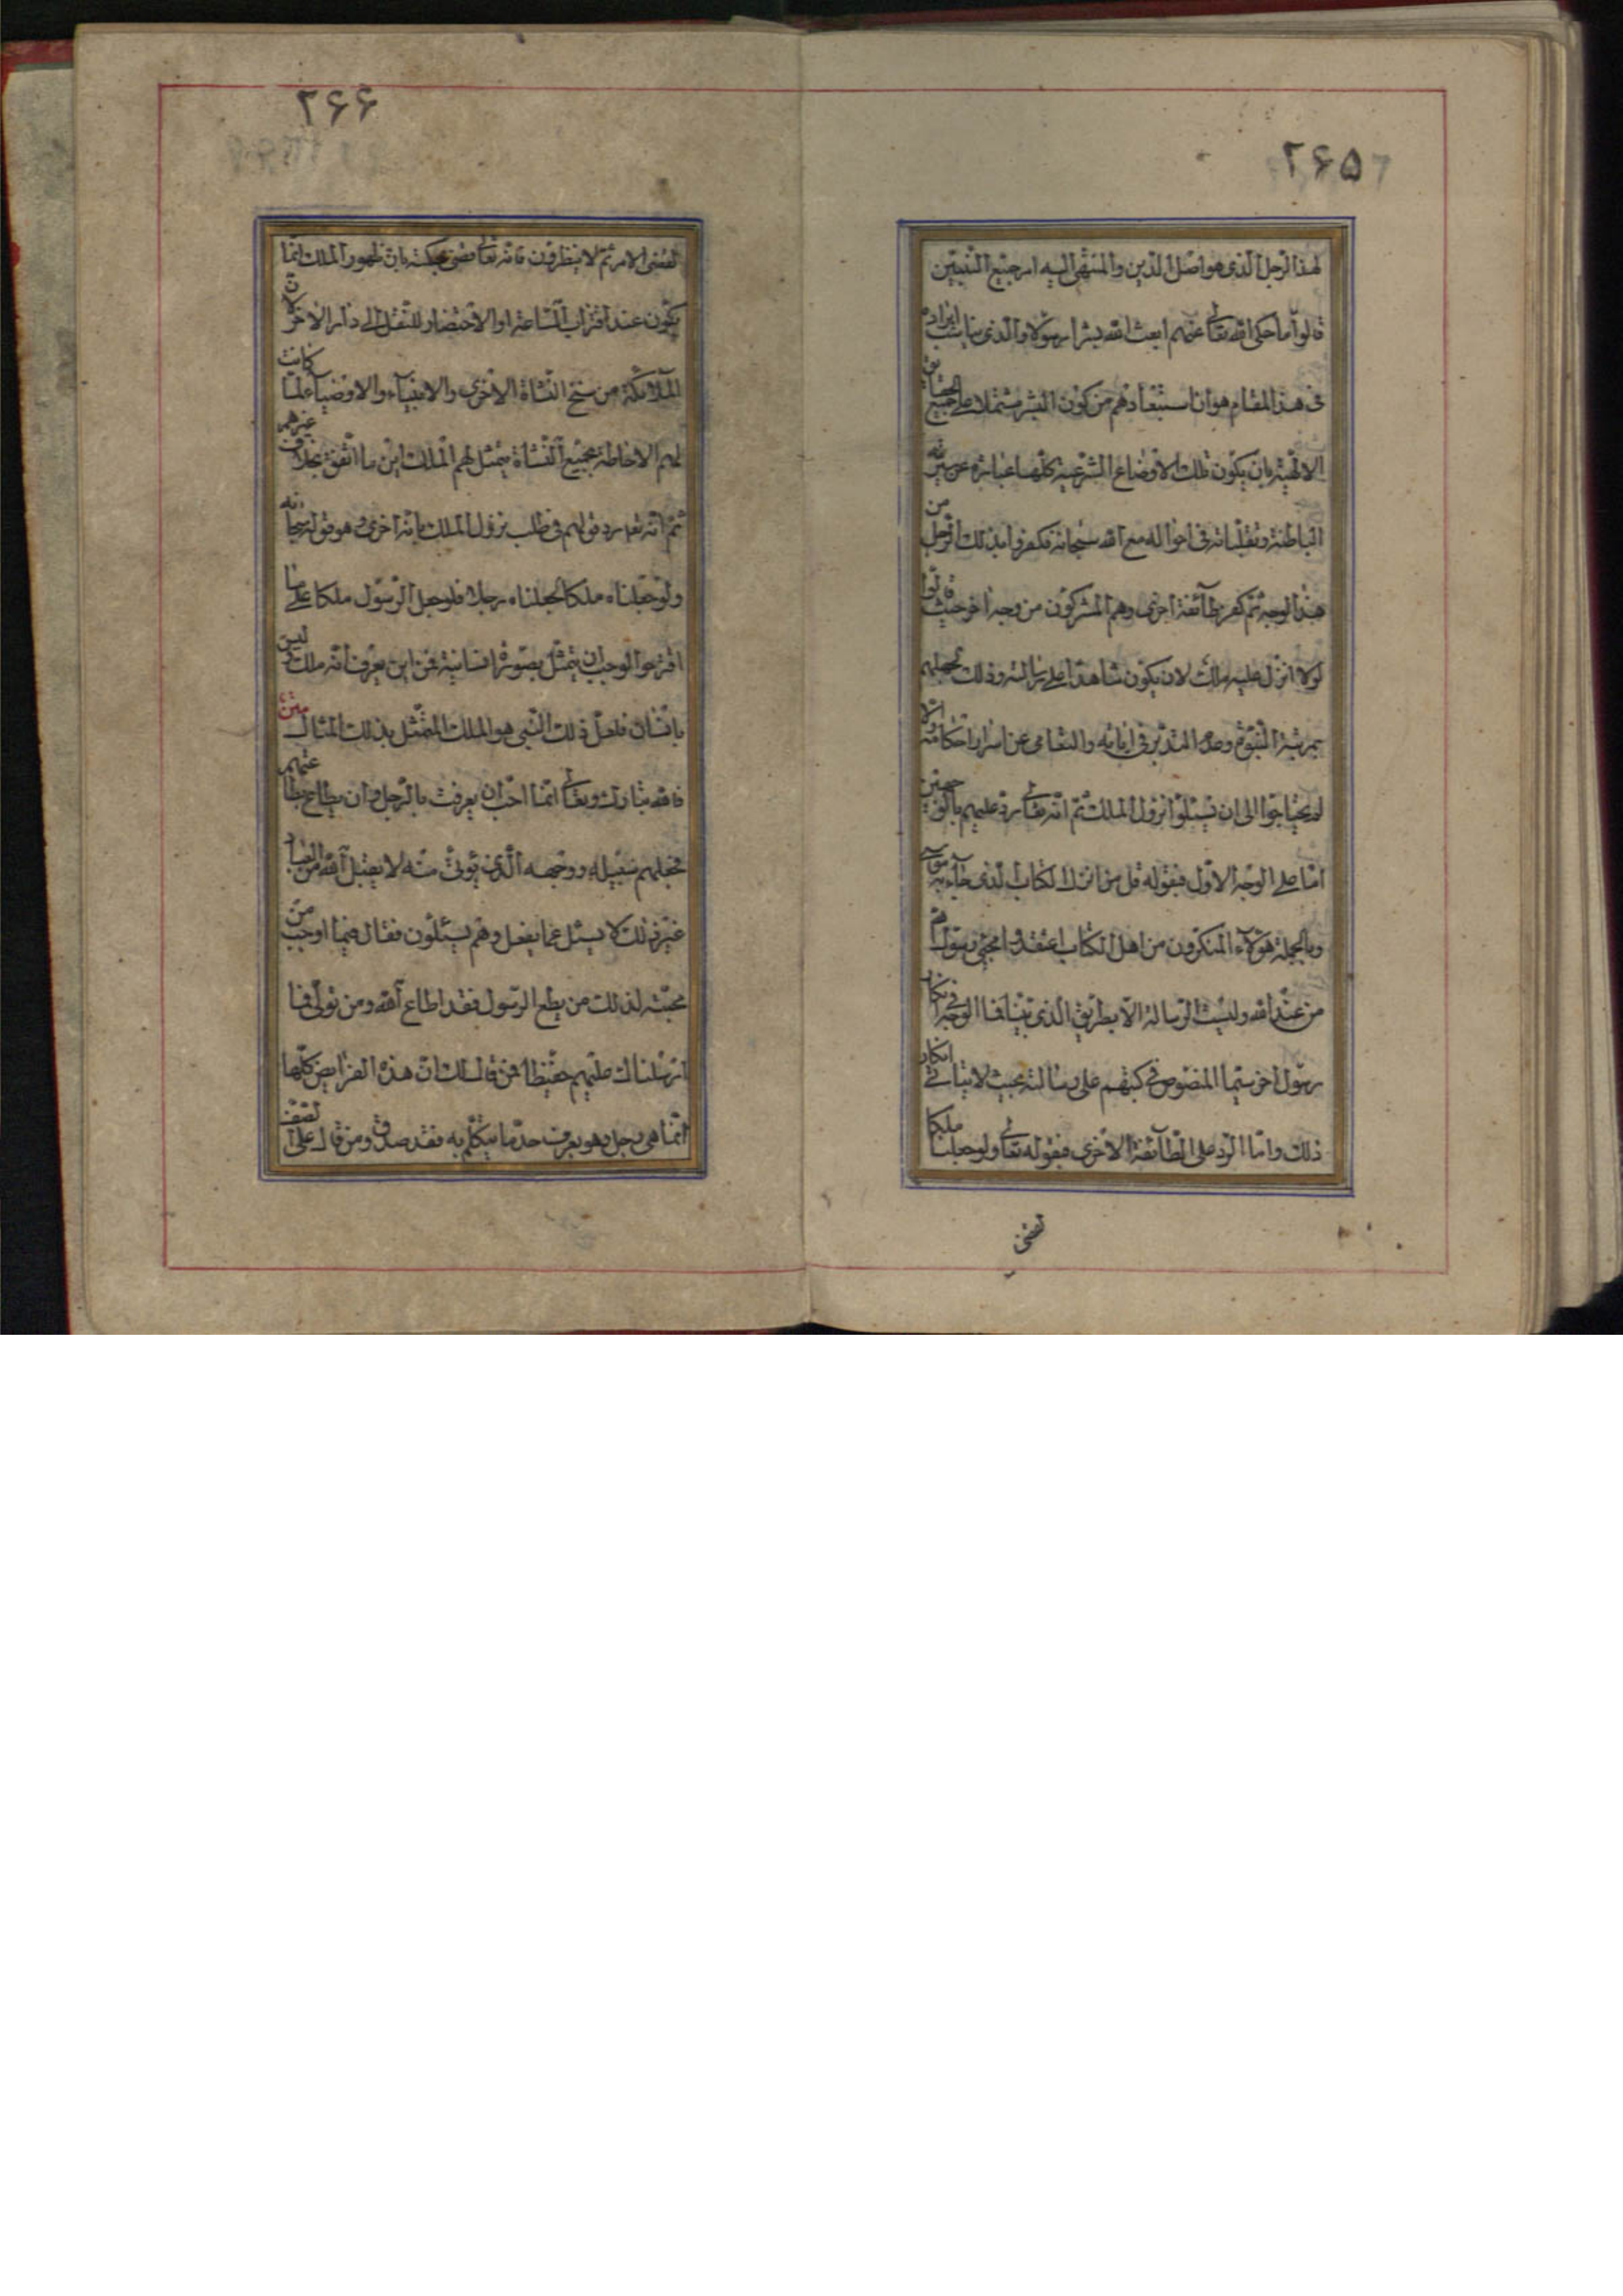 ۲۶۵
لهذا الرجل الذى هو اصل الدين والمنتهى اليه امر جميع النبيين
قالوا ما حكى الله تعالى عنهم ابعث الله بشرا رسولا والذى يناسب ايراده
فى هذا المقام هو ان استبعادهم من كون البشر مشتملا على جميع الحقايق
الالهية بان يكون تلك الاوضاع الشرعية كلها عبارة عن سيرته
الباطنة وتقلباته فى احواله مع الله سبحانه فكفروا بذلك الرجل من
هذا الوجه ثم كفر طائفة اخرى وهم المشركون من وجه اخر حيث قالوا
لولا انزل عليه ملك لان يكون شاهدا على رسالته وذلك لجهلهم
بمرتبة النبوة وعدم التدبر فى اياته والتعامى عن اسرار احكامه والا
لم يحتاجوا الى ان يسئلوا نزول الملك ثم انه تعالى رد عليهم بالوجهين
اما على الوجه الاول فبقوله قل من انزل الكتاب الذى جاء به موسى
وبالجملة هؤلاء المنكرون من اهل الكتاب اعتقدوا مجئ رسولهم
من عند الله وليست الرسالة الا بطريق الذى بينا فما الوجه فى انكار
رسول اخر سيما المنصوص فى كتبهم على رسالته بحيث لا يتاتى انكار
ذلك واما الرد على الطائفة الاخرى فبقوله تعالى ولو جعلنا ملكا
لقضى
۲۶۶
لقضى الامر ثم لا ينظرون فانه تعالى قضى بحكمته بان ظهور الملك انما
يكون عند اقتراب الساعة او الاحتضار للنقل الى دار الاخرة لان
الملائكة من سنخ النشاة الاخرى والانبياء والاوصياء لما كانت
لهم الاحاطة بجميع النشاة يتمثل لهم الملك اين ما اتفق بخلاف غيرهم
ثم انه تعالى رد قولهم فى طلب نزول الملك باية اخرى وهو قوله سبحانه
ولو جعلناه ملكا لجعلناه رجلا فلو جعل الرسول ملكا على ما
اقترحوا لوجب ان يتمثل بصورة انسانية فمن اين يعرف انه ملك وليس
بانسان فلعل ذلك النبى هو الملك المتمثل بذلك المثال متن
فالله تبارك وتعالى انما احب ان يعرف بالرجل وان يطاع بطاعتهم
فجعلهم سبيله ووجهه الذى يؤتى منه لا يقبل الله من العباد
غير ذلك لا يسئل عما يفعل وهم يسئلون فقال فيما اوجب من
محبته لذلك من يطع الرسول فقد اطاع الله ومن تولى فما
ارسلناك عليهم حفيظا فمن قال لك ان هذه الفرايض كلها
انما هى رجل وهو يعرف حد ما يتكلم به فقد صدق ومن قال على الصفة